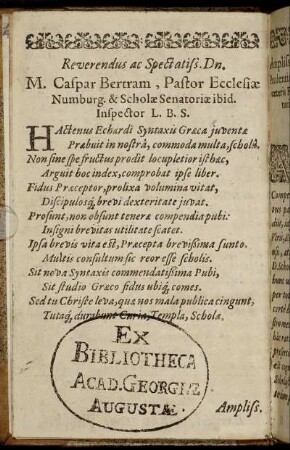 Reverendus ac Spectatiss. Dn.
M. Caspar Bertram, Pastor Ecclesiæ
Numburg. & Scholæ Senatoriæ ibid.
Inspector L. B. S.
HActenus Echardi Syntaxis Græca juventæ
Præbuit in nostrâ, commoda multa, scholâ.
Non sine spe fructus prodit locupletior isthæc,
Arguit hoc index, comprobat ipse liber.
Fidus Præceptor, prolixa volumina vitat,
Discipulosq́, brevi dexteritate juvat.
Prosunt, non obsunt teneræ compendia pubi:
Insigni brevitas utilitate scatet.
Ipsa brevis vita est, Præcepta brevissima sunto.
Multis consultum sic reor esse scholis.
Sit neva Syntaxis commendatissima Pubi,
Sit studio Græco fidus ubiq́, comes.
Sed tu Christe leva, quæ nos mala publica cingunt,
Tutaq́, durabunt Curia, Templa, Scholæ.
EX
BIBLIOTHECA
ACAD. GEORGIÆ
AUGUSTÆ.
Ampliss.